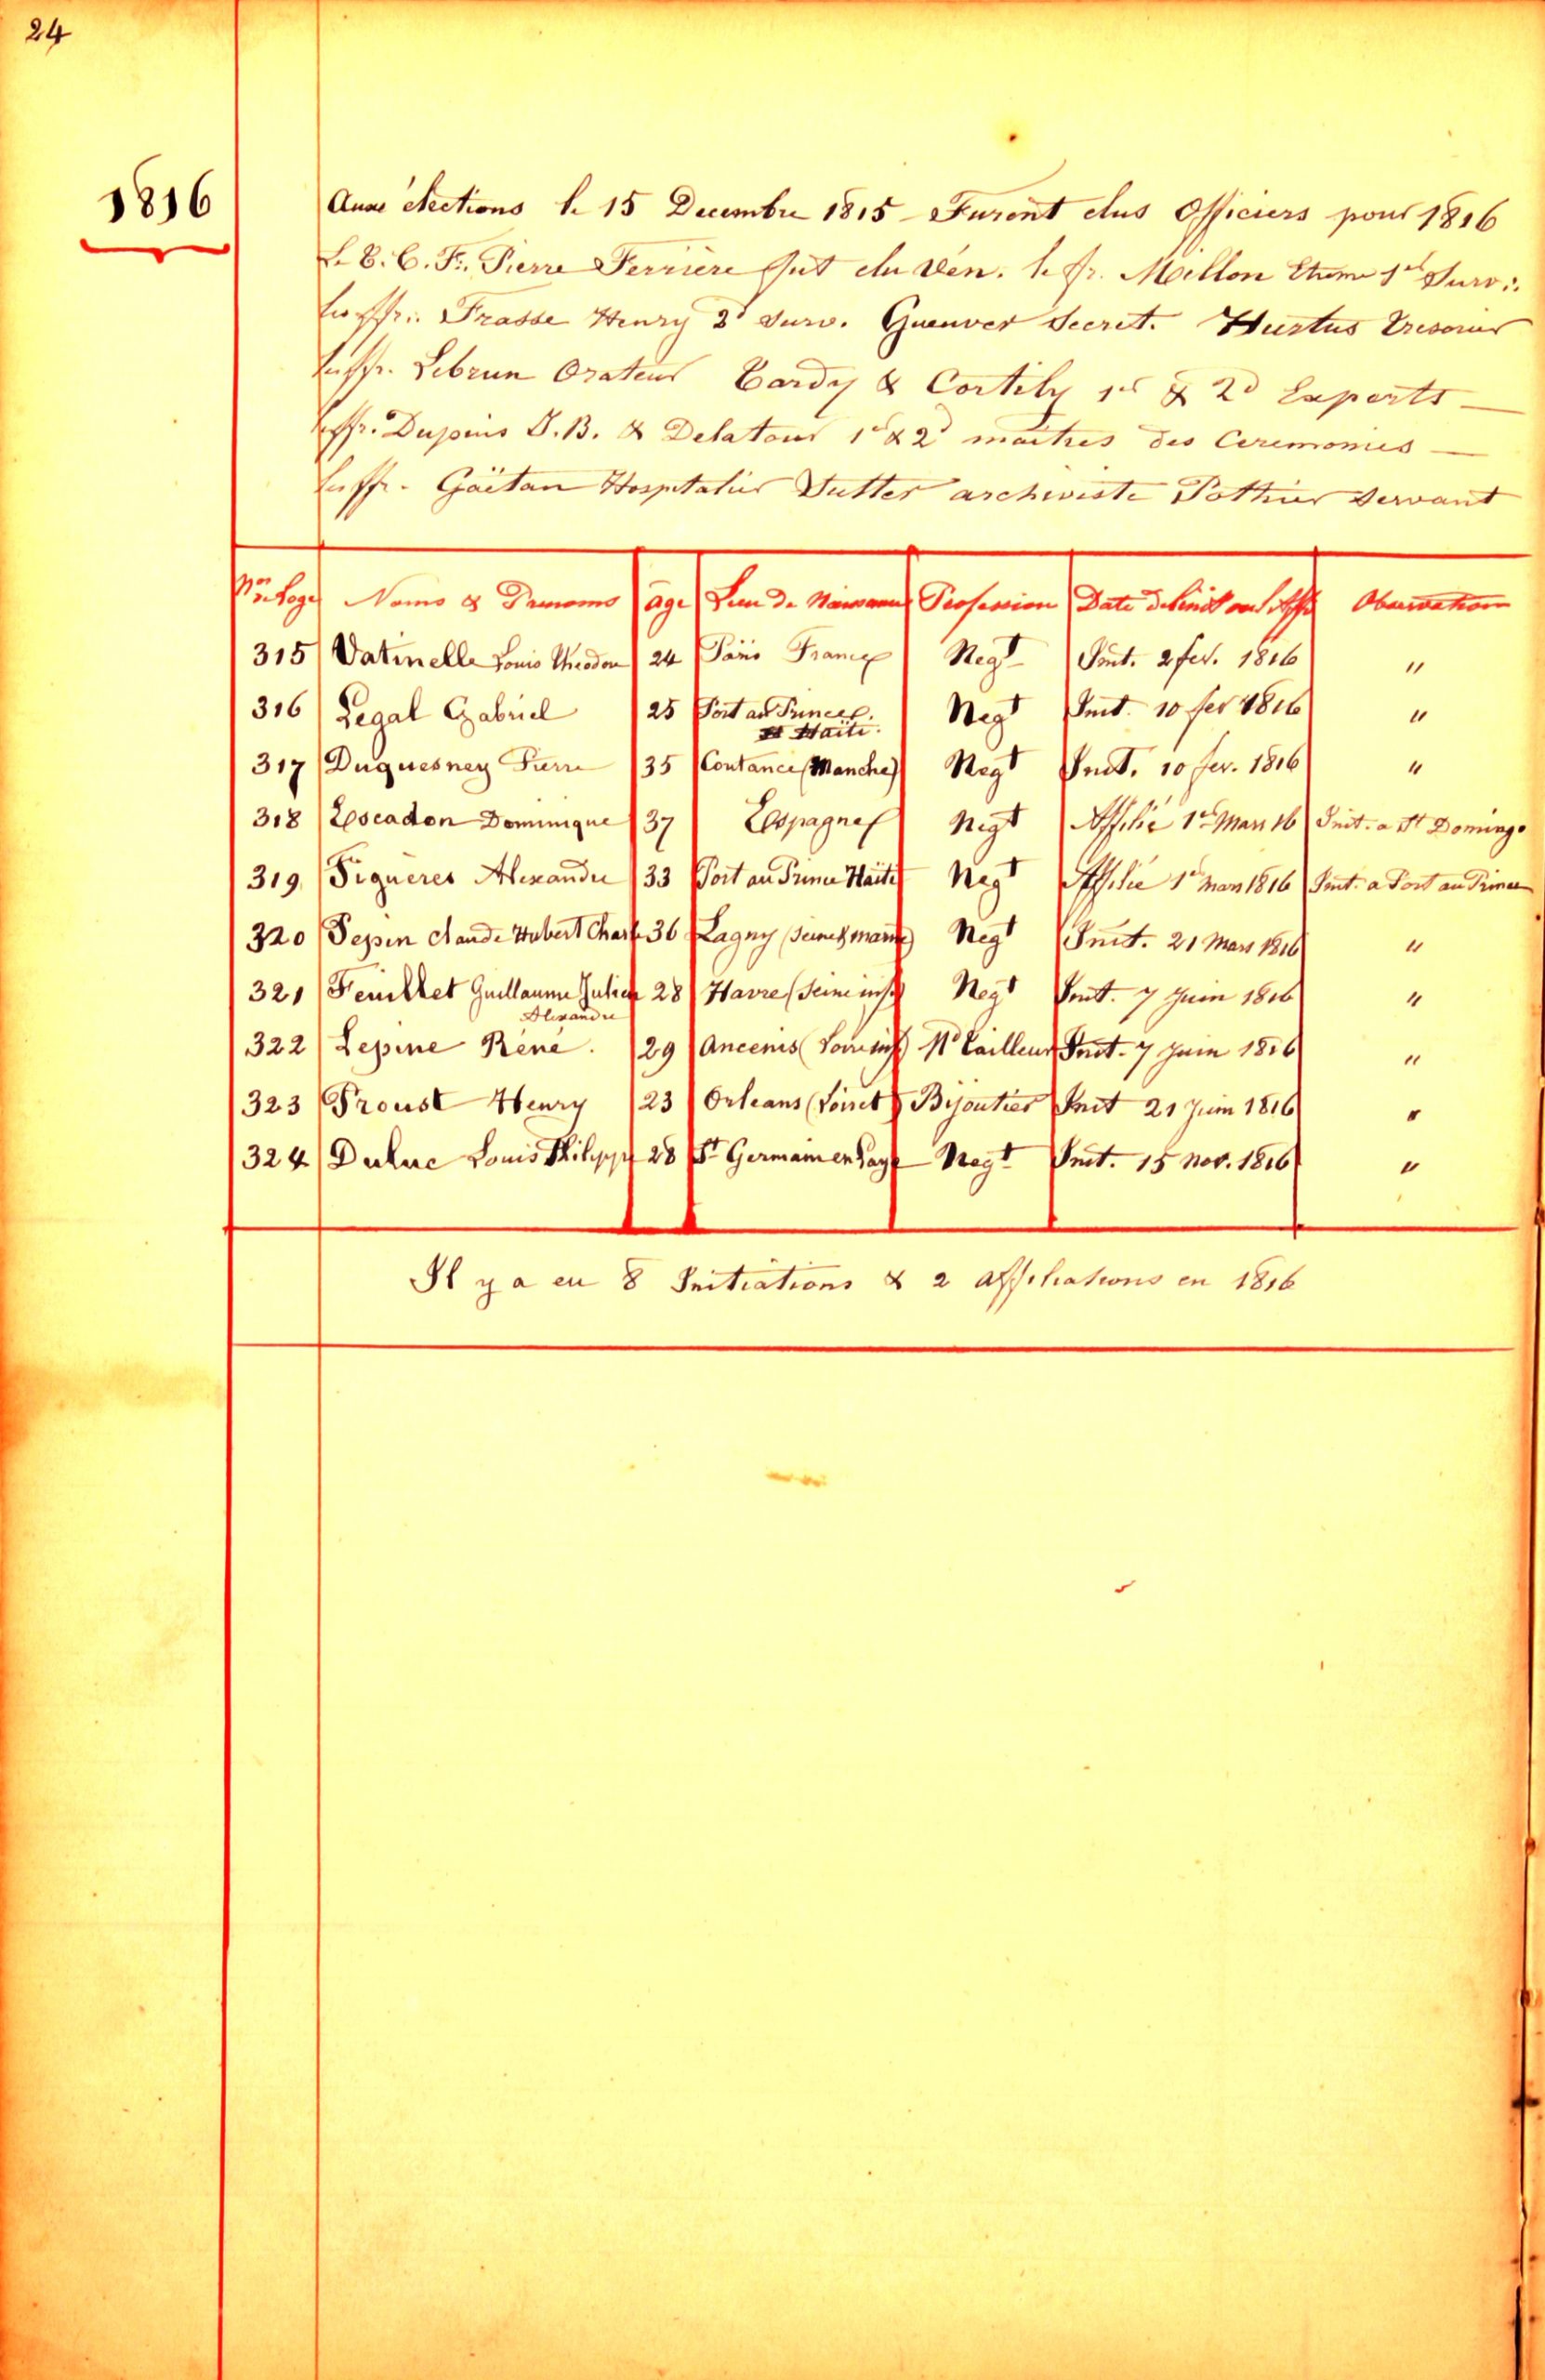 24
1816
Aux élections le 15 Decembre 1815 - Furent elus Officiers pour 1816
Le T. C. F. Pierre Ferriere fut elu Vén. le fr. Mellon Etienne 1er Surv:.
Les ffr:. Prasse Henry 2d Surv. Guenver Secret. Hustus Tresorier
Les ffr. Lebrun Orateur Tardy & Cortily 1er & 2d Experts
Les ffr. Dupuis J. B. & Delatour 1er & 2d maitres des Ceremonies
Les ffr. Gaëtan Hospitalier Sutter archiviste Pothier Servant
Nos Loge Noms & Prenoms age Lieu de Naissance Profession Date de l'init ou l'aff. Observations
315 Vatinelle Louis Theodore 24 Paris France Negt Init. 2 fev. 1816 "
316 Legal Gabriel 25 Port au Prince Negt Init. 10 fev 1816 "
Haiti.
317 Duquesney Pierre 35 Coutance (Manche) Negt Init. 10 fev. 1816 "
318 Escadon Dominique 37 Espagne Negt Affilié 1er Mars 16 Init. a St Domingo
319 Figueres Alexandre 33 Port au Prince Haiti Negt Affilié 1er Mars 1816 Init. a Port au Prince
320 Pepin Claude Hubert Charl 36 Lagny (Seine & marne) Negt Init. 21 Mars 1816 "
321 Feuillet Guillaume Julien 28 Havre (Seine inf) Negt Init. 7 Juin 1816 "
Alexandre
322 Lepine Réné. 29 Ancenis (Loire inf) Md Tailleur Init. 7 Juin 1816 "
323 Proust Henry 23 Orleans (Loiret) Bijoutier Init 21 Juin 1816 "
324 Duluc Louis Philippe 28 St Germain en Laye Negt Init. 15 Nov. 1816 "
Il y a eu 8 Initiations & 2 affiliations en 1816